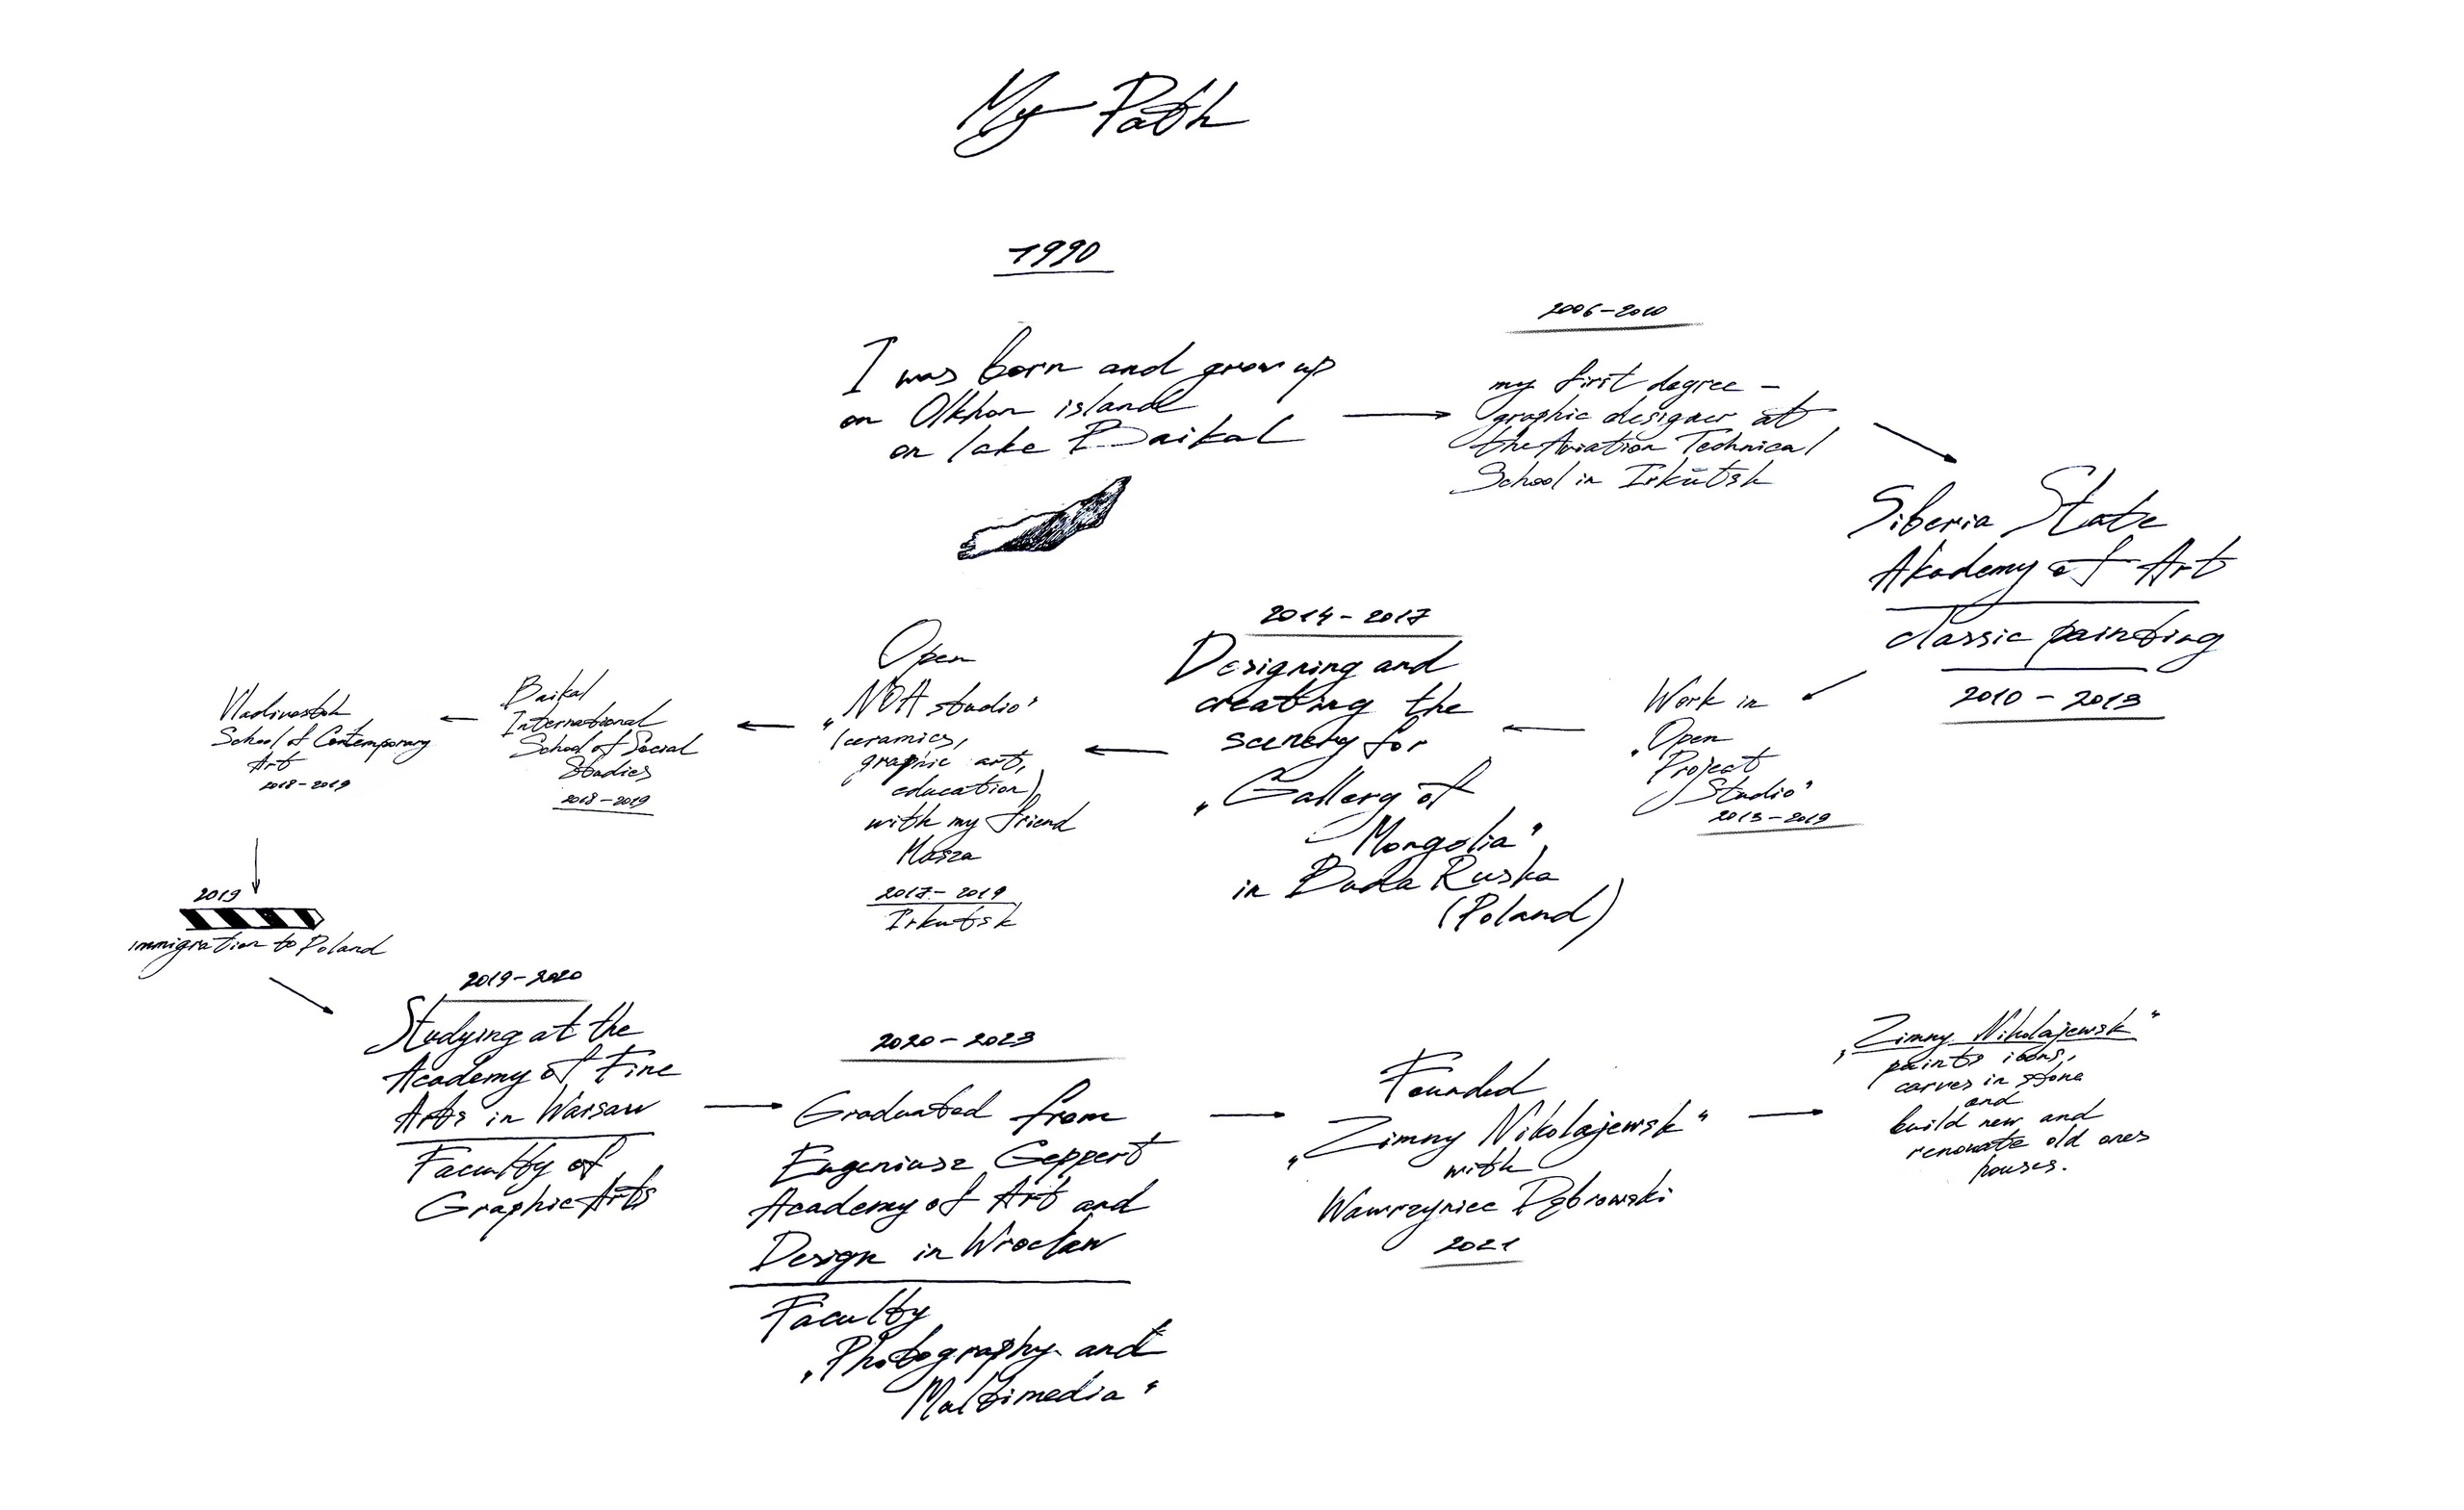 My Path
1990
I was born and grow up
on Olkhon island
on lake Baikal
2006-2010
my first degree -
graphic designer at
the Aviation Technical
School in Irkutsk
Siberia State
Akademy of Art
classic painting
2010 - 2013
Work in
"Open
Project
Studio"
2013-2019
2014 - 2017
Designing and
creating the
scenery for
„Gallery of
Mongolia"
in Ruska
(Poland)
Open
„NOA studio"
(ceramics,
graphic art,
education)
with my friend
Masza
2017- 2019
Irkutsk
Baikal
International
School of Social
Studies
2018-2019
Vladivostok
School of Contemporary
Art
2018-2019
2019
immigration to Poland
2019-2020
Studying at the
Academy of Fine
Arts in Warsaw
Faculty of
Graphic Arts
2020 - 2023
Graduated from
Eugeniusz Geppert
Academy of Art and
Design in Wrocław
Faculty
„Photography and
Multimedia"
Founded
„Zimny Nikolajewsk"
with
Wawrzyniec Dąbrowski
2021
„Zimny Nikolajewsk"
paints icons,
carves in stone
and
build new and
renovate old ones
houses.